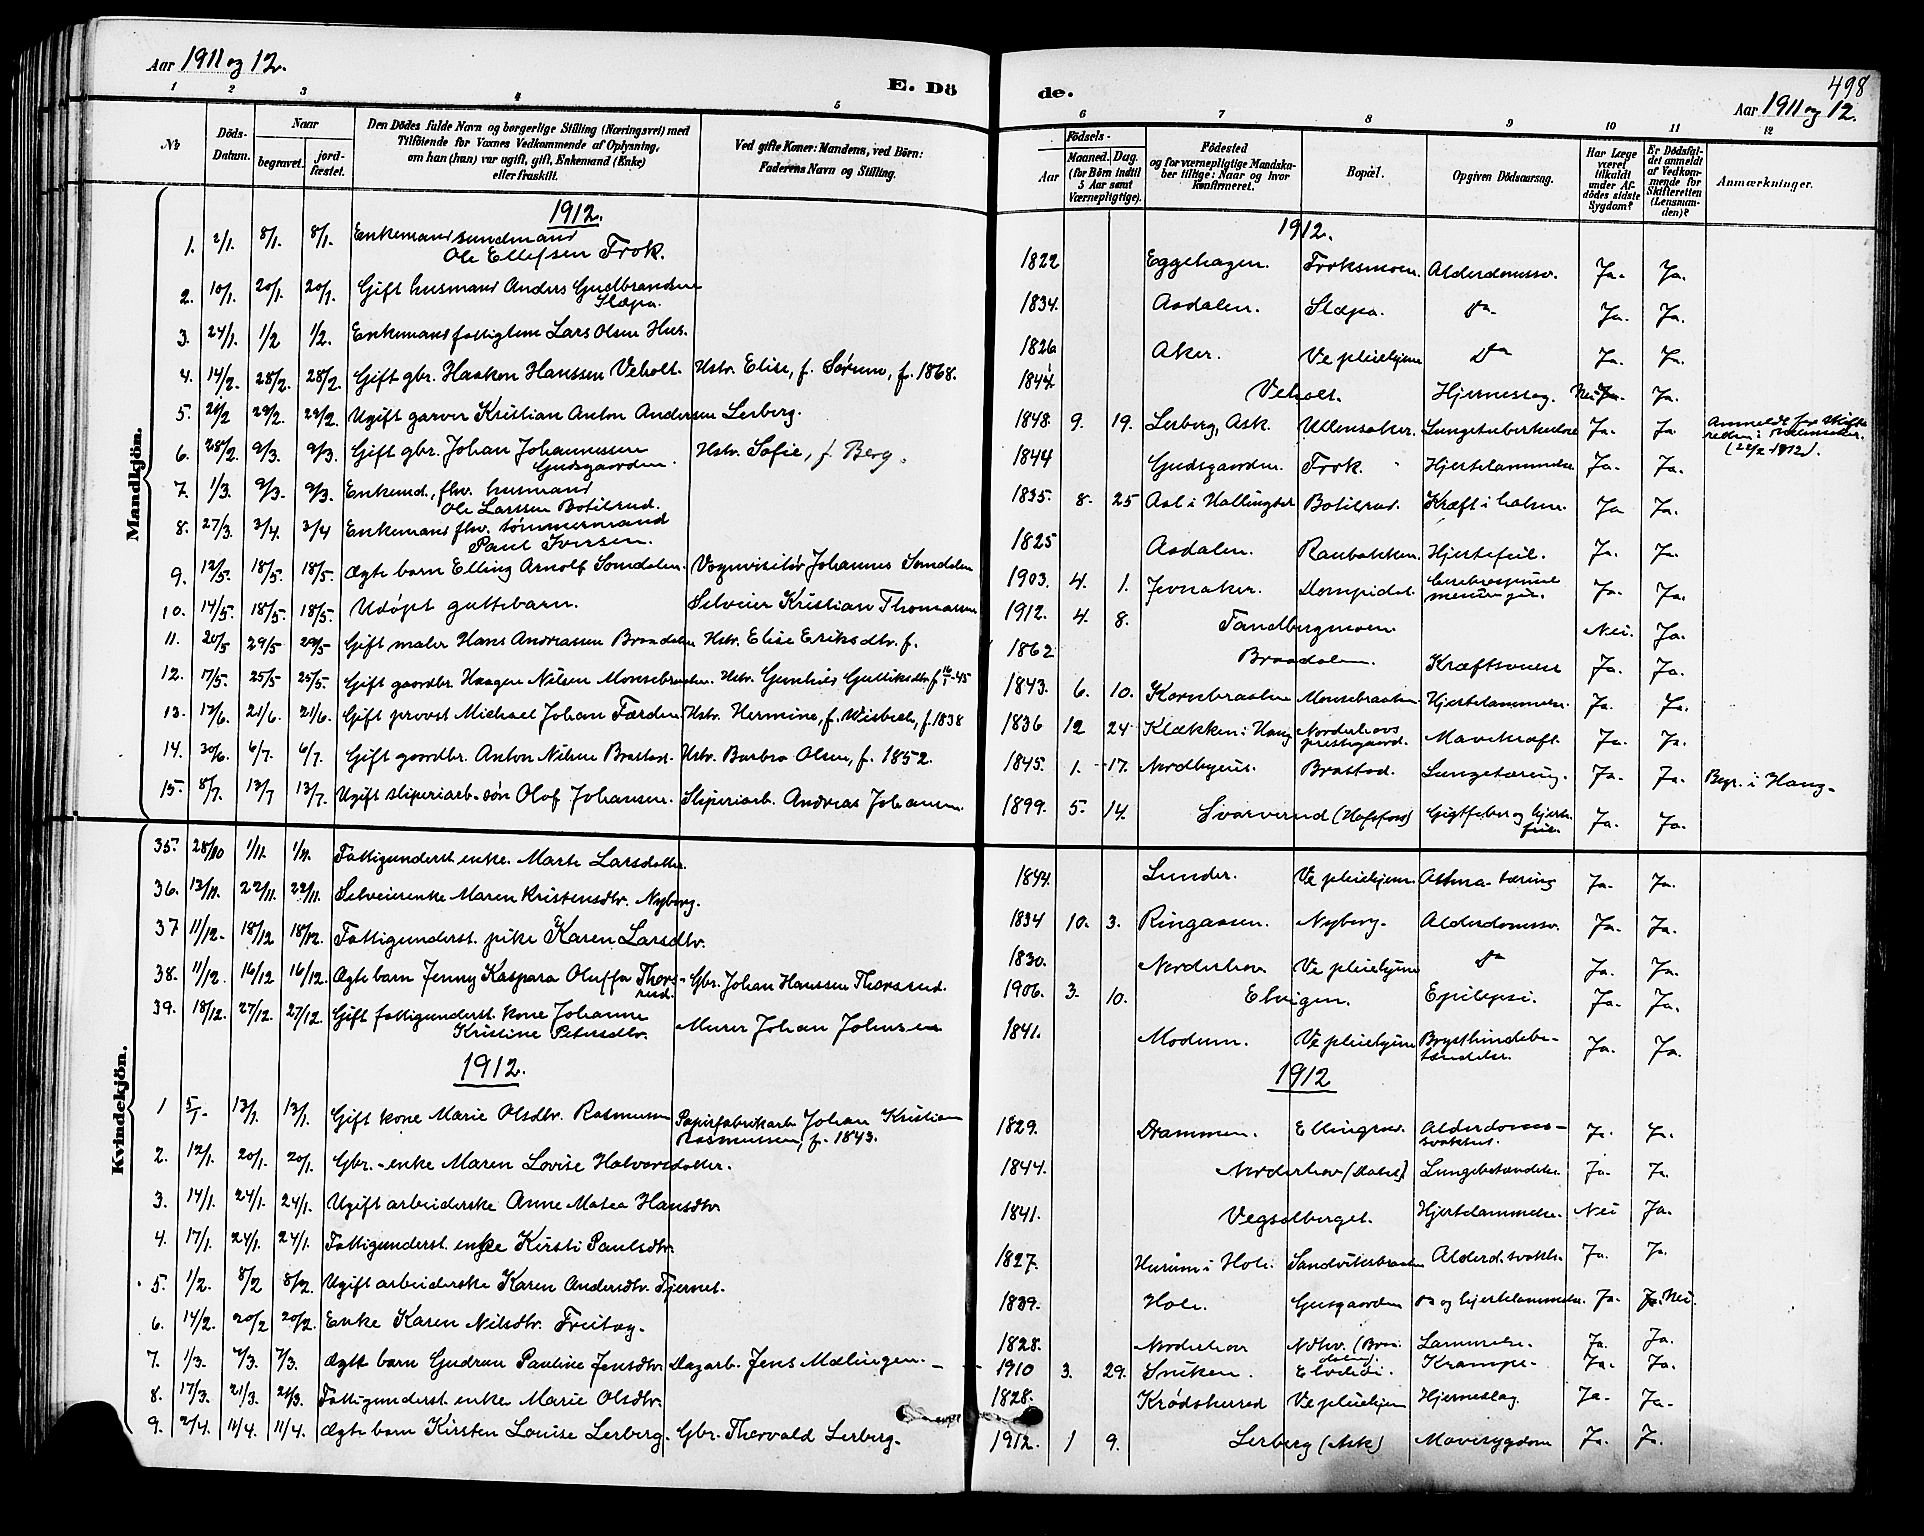 Aar 1911 og 12.
E. Dö
de.
498
Aar 1911 og 12.
1 2 3 4 5
6 7 8 9 10 11 12
No
Döds-Datum.
Naar
begravet.
jord-fæstet.
Den Dödes fulde Navn og borgerlige Stilling (Næringsvei) med
Tilföiende for Voxnes Vedkommende af Oplysning,
om han (hun) var ugift, gift, Enkemand (Enke)
eller fraskilt.
Ved gifte Koner: Mandens, ved Börn:
Faderens Navn og Stilling.
Födsels-
Aar
Maaned. Dag.
(for Börn indtil
5 Aar samt
Værnepligtige).
Födested
og for værnepligtige Mandska-
ber tillige: Naar og hvor
Konfirmeret.
Bopæl.
Opgiven Dödsaarsag.
Har Læge
været
tilkaldt
under Af-
dödes sidste
Sygdom?
Er Dödsfal-
det anmeldt
af Vedkom-
mende for
Skifteretten
(Lensman-
den)?
Anmærkninger.
Mandkjön.
1912.
1912.
1. 2/1. 8/1. 8/1. Enkemand sundmand
Ole Ellefsen Frok. 1822 Eggehagen. Froksmoen. Alderdomssv. Ja. Ja.
2. 10/1. 20/1. 20/1. Gift husmand Anders Gudbrandsen
Slæpa. 1834. Aadalen. Slæpa. do. Ja. Ja.
3. 24/1. 1/2 1/2. Enkemand fattiglem Lars Olsen Hus. 1826 Aker. Ve pleiehjem do Ja. Ja.
4. 14/2. 28/2. 28/2. Gift gbr. Haakon Hanssen Veholt. Hstr. Elise, f. Sørum, f. 1868. 1844 Veholt. Hjerneslag. Nei Ja.
5. 21/2 29/2. 29/2. Ugift garver Kristian Anton Andersen Lerberg. 1848. 9. 19. Lerberg, Ask. Ullensaker. Lungetuberkulose Ja. Ja Anmeldt for skifte
retten i Ullensaker.
(22/2 1912).
6. 28/2. 9/3. 9/3. Gift gbr. Johan Johannessen
Gudsgaarden. Hstr. Sofie, f. Berg. 1844 Gudsgaarden. Frok. Hjertelammelse Ja. Ja.
7. 1/3. 9/3. 9/3. Enkemd., fhv. husmand
Ole Larssen Botilrud. 1835. 8. 25 Aal i Hallingdal Botilrud. Kræft i halsen. Ja Ja.
8. 27/3. 3/4. 3/4 Enkemand fhv. tømmermand
Paul Iversen. 1825 Aadalen. Raubakken. Hjertefeil. Ja. Ja.
9. 12/5. 18/5. 18/5. Ægte barn Elling Arnolf Somdalen. Vognvisitør Johannes Somdalen 1903. 4. 1. Jevnaker. Ja. Ja.
10. 14/5. 18/5. 18/5. Udøpt guttebarn. Selveier Kristian Thomassen 1912. 4. 8. Tandbergmoen. Nei. Ja.
11. 20/5 29/5 29/5 Gift maler Hans Andreassen Braadalen Hstr. Elise Eriksdtr. f. 1862 Braadalen. Kræftsvulst Ja. Ja.
12. 17/5. 25/5 25/5. Gift gaardbr. Haagen Nilsen Monsebraaten. Hstr. Gunhild Gulliksdtr. f. 16/1-45 1843. 6. 10. Kornebraaten Monsebraaten Hjertelammelse. Ja. Ja.
13. 12/6. 21/6. 21/6. Gift provst Michael Johan Færden Hstr. Hermine, f. Wisbech, f. 1838 1836 12 24. Klækken i Haug Norderhovs
prestegaard. Mavekræft. Ja. Ja.
14. 30/6. 6/7. 6/7. Gift gaardbr. Anton Nilsen Brastad. Hstr. Barbra Olsen, f. 1852. 1845. 1. 17. Nordbyeie. Brastad. Lungetæring. Ja. Ja. Begr. i Haug.
15. 8/7. 13/7 13/7. Ugift sliperiarb. søn Olof Johansen. Sliperiarb. Andreas Johansen. 1899. 5. 14. Svarverud (Hofsfoss) Gigtfeber og hjerte-
feil. Ja. Ja.
Kvindekjön.
35. 28/10 1/11. 1/11. Fattigunderst. enke. Marte Larsdatter. 1844. Lunder. Ve pleiehjem. Athma-tæring Ja. Ja.
36. 13/11. 22/11. 22/11. Selveierenke Maren Kristensdtr. Nyberg. 1834 10. 3. Ringaasen. Nyberg. Alderdomssv. Ja. Ja.
37 11/12. 18/12 18/12. Fattigunderst. pike Karen Larsdtr. 1830. Norderhov Ve pleiehjem do Ja. Ja.
38. 11/12. 16/12 16/12. Ægte barn Jenny Kaspara Oluffa Thors-
rud. Gbr. Johan Hanssen Thorsrud. 1906. 3. 10. Elvigen. Epilepsi. Ja. Ja.
39. 18/12. 27/12. 27/12. Gift fattigunderst. kone Johanne
Kristine Petersdtr. Murer Johan Johnsen 1841. Modum. Ve pleiehjem Brysthindebe-
tændelse. Ja. Ja.
1912.
1912
1 5/1. 13/1. 13/1. Gift kone Marie Olsdtr. Rasmussen Papirfabrikarb. Johan Kristian
Rasmussen, f. 1843. 1829. Drammen. Ellingrud. Alderdoms-
svakhet. Ja. Ja.
2. 12/1. 20/1. 20/1. Gbr.-enke Maren Lovise Halvorsdatter. 1844. Norderhov Lungebetændelse Ja. Ja.
3. 14/1. 24/1. 24/1. Ugift arbeiderske Anne Matea Hansdtr. 1841. Vegsalberget. Hjertelammelse. Nei Ja.
4. 17/1. 24/1. 24/1. Fattigunderst. enke Kirsti Paulsdtr. 1827. Hurum i Hole. Sandvikbraaten Alderd. svakh. Ja. Ja.
5. 1/2. 8/2 8/2. Ugift arbeiderske Karen Andersdtr. Tjernet. 1839. Hole. Gusgaarden do og hjertelammelse. Ja. Nei.
6. 14/2. 20/2 20/2. Enke Karen Nilsdtr. Freitag. 1828. Norderhov Ndhv. Lammelse. Ja. Ja.
7. 1/3. 7/3. 7/3. Ægte barn Gudrun Pauline Jensdtr. Dagarb. Jens Mælingen. 1910 3. 29. Sniken. Krampe. Ja. Ja.
8. 17/3. 21/3. 21/3. Fattigunderst. enke Marie Olsdtr. 1828. Krødsherred Ve pleiehjem Hjerneslag. Ja. Ja.
9. 2/4. 11/4. 11/4. Ægte barn Kirsten Louise Lerberg. Gbr. Thorvald Lerberg. 1912. 1 9. Lerberg (Ask) Mavesygdom Ja. Ja.